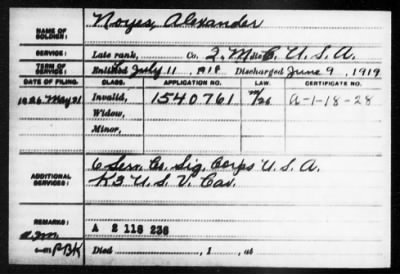 NAME OF SOLDIER: Noyes, Alexander
SERVICE: Late rank, Co. 2, M U.S.A.
TERM OF SERVICE: Enlisted July 11, 1918 Discharged June 9, 1919
DATE OF FILING. CLASS. APPLICATION NO. LAW. CERTIFICATE NO.
1926 May 21 Invalid, 1540761 /26 A-1-18-28
Widow,
Minor,
ADDITIONAL SERVICES: 6 Serv. Co. Sig. Corps U.S.A.
K3 U.S.V. Cav.
REMARKS: A 2 118 236
PBK Died , 1 , at